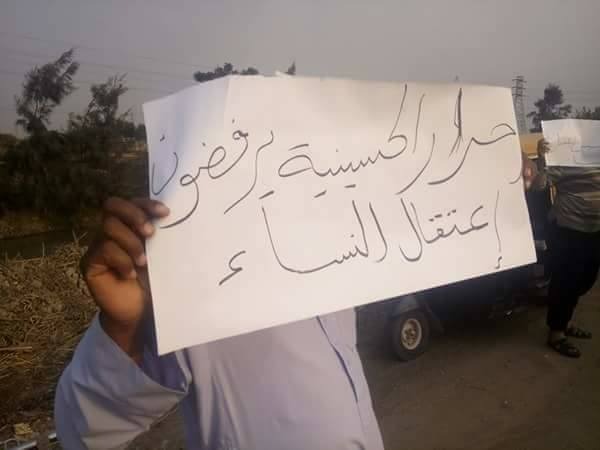 حرار الحسينية يرفضون
إعتقال النساء